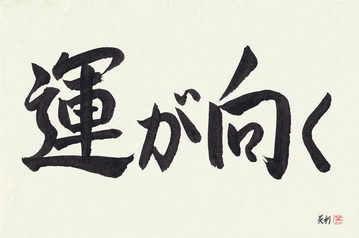 運が向く